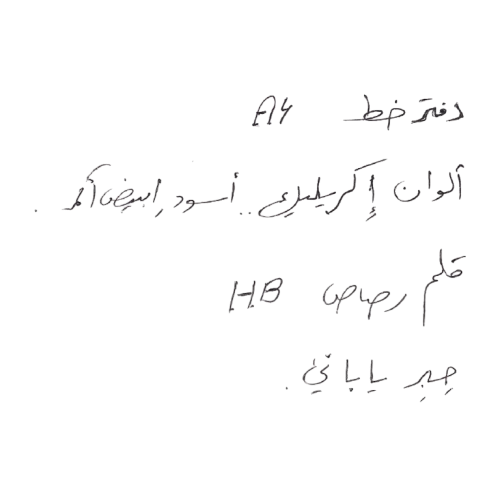 دفتر خط A4
ألوان إكريليك.. أسود, ابيض أحمر.
قلم رصاص HB
حبر ياباني.